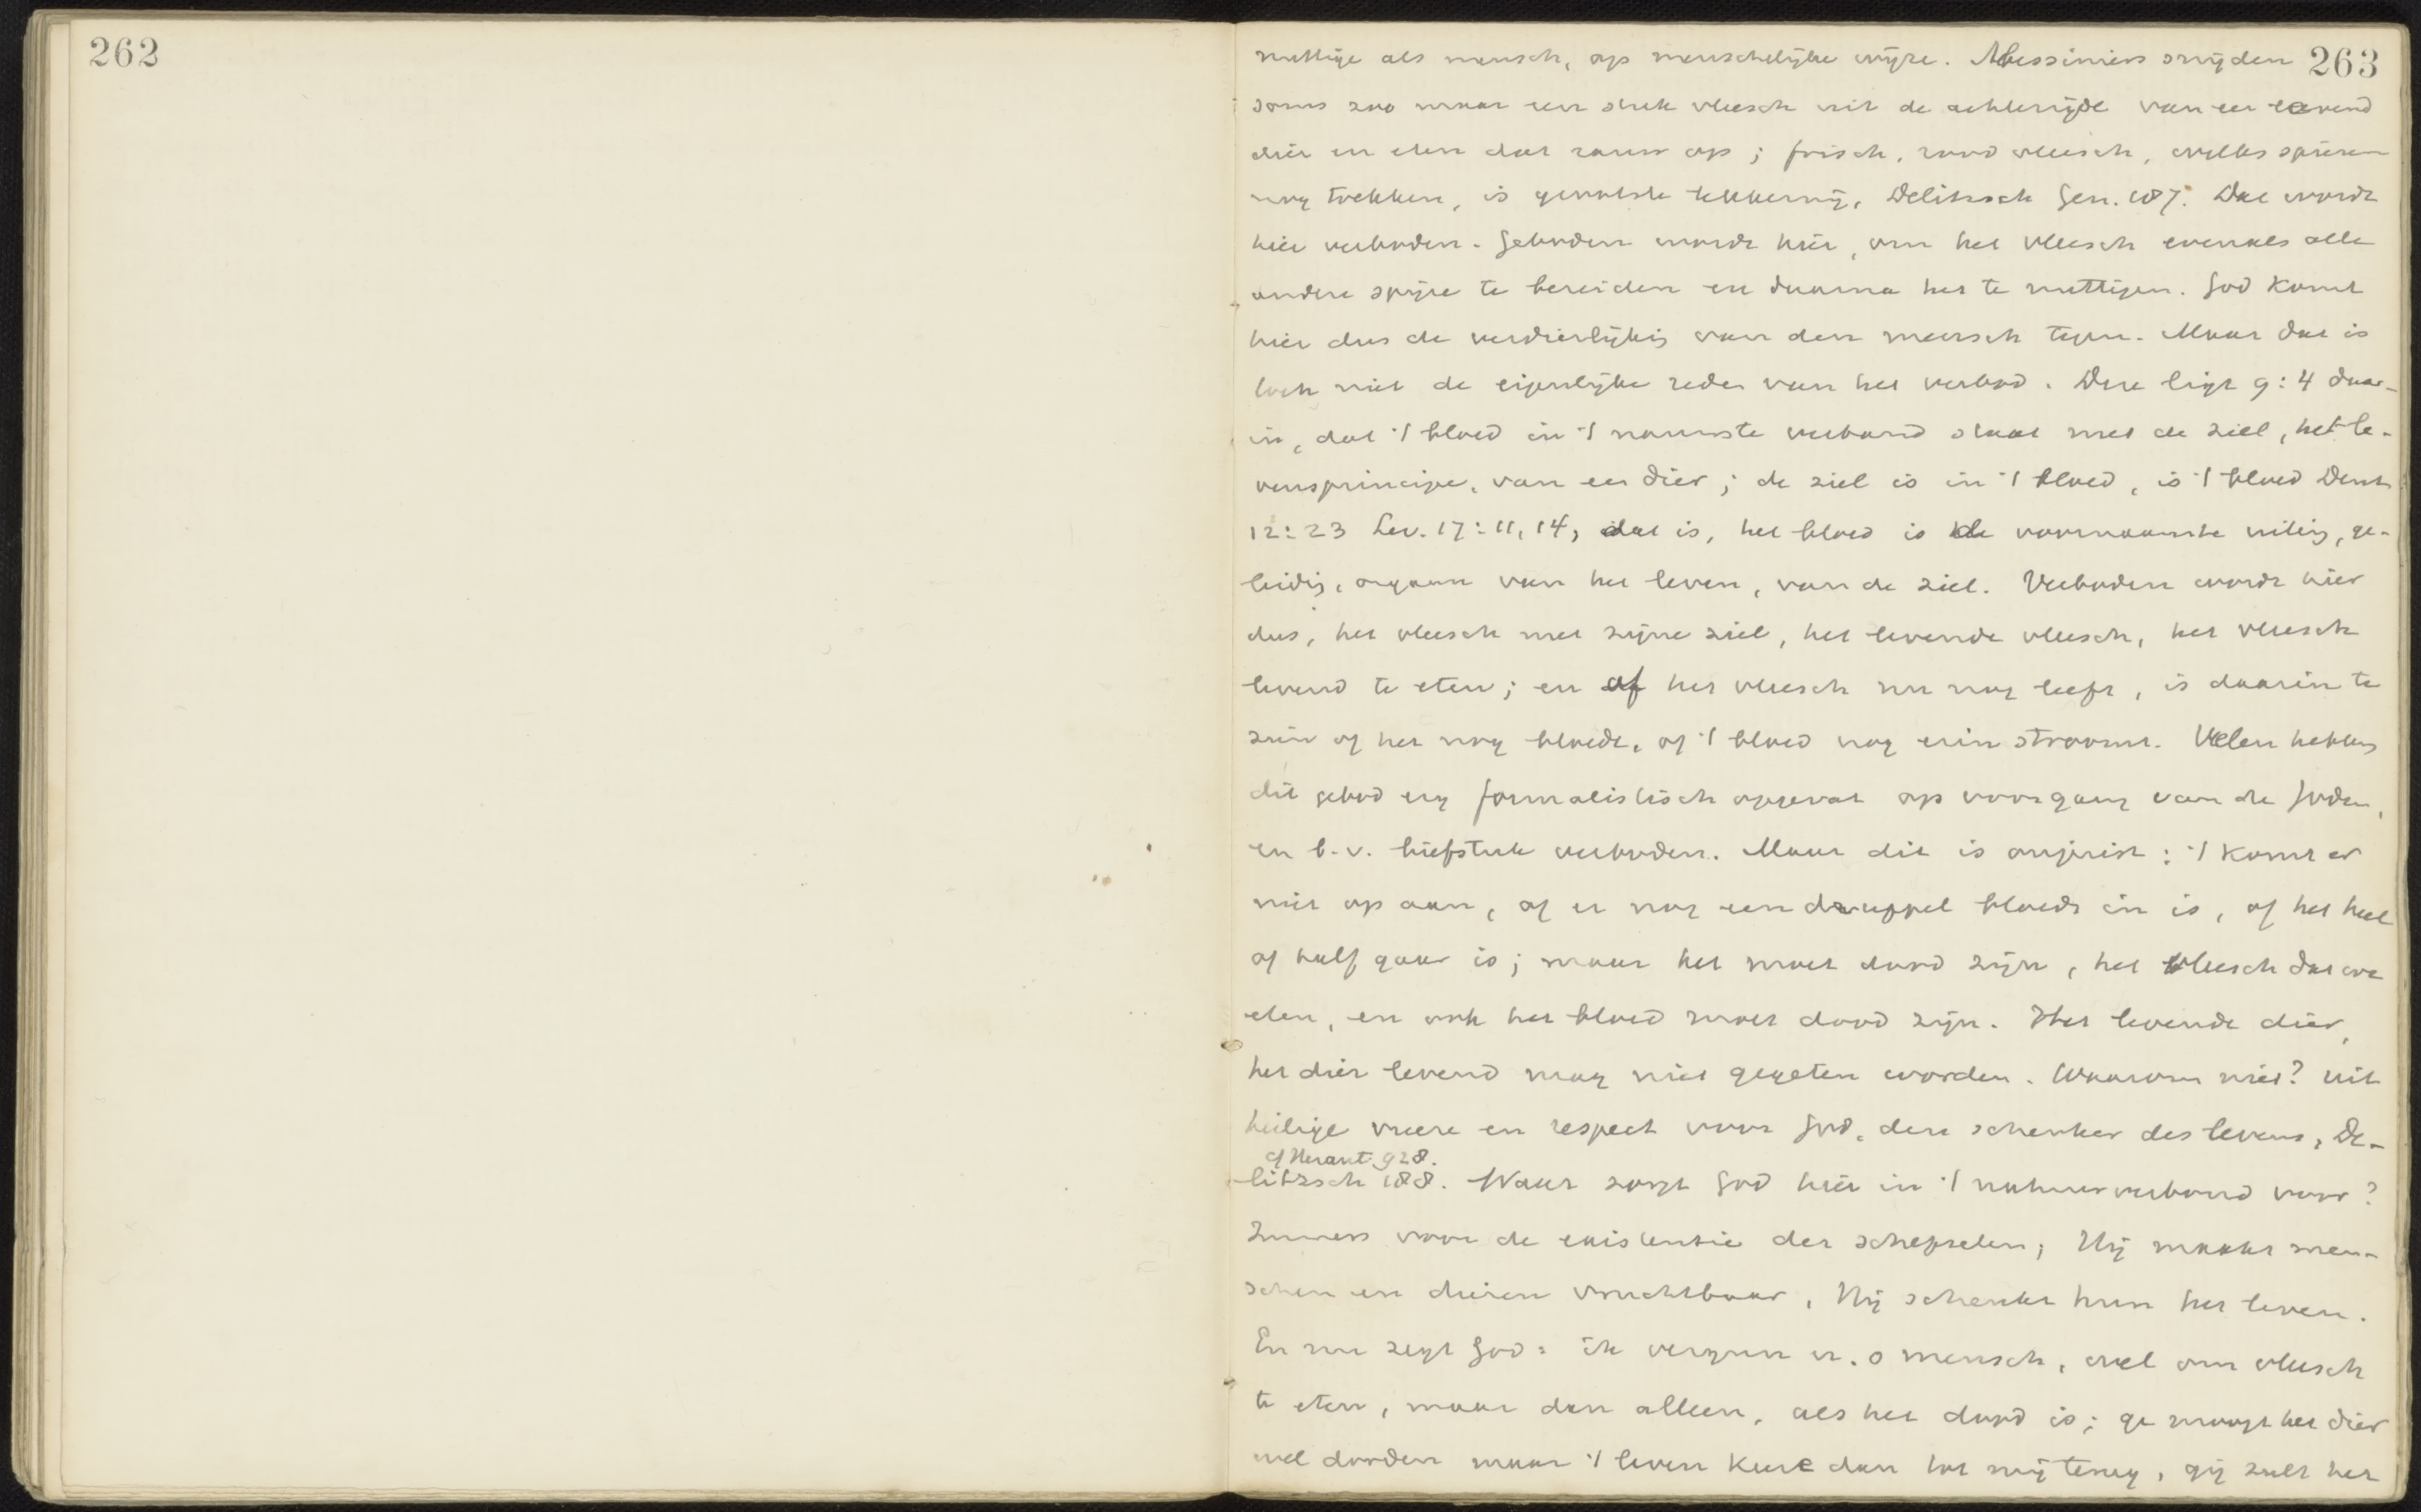 262
263
nuttige als mensch, op menschelijke wijze. Abessiniers snijden
soms zoo maar een stuk vleesch uit de achterzijde van een levend
dier en eten dat rauw op; frisch, rood vleesch, welks spieren
nog trekken, is grootste lekkernij, Delitzsch Gen. 187. Dat wordt
hier verboden. Geboden wordt hier, om het vleesch evenals alle
andere spijze te bereiden en daarna het te nuttigen. God komt
hier dus de verdierlijking van den mensch tegen. Maar dat is
toch niet de eigenlijke reden van het verbod. Deze ligt 9:4 daar-
in, dat 't bloed in 't nauwste verband staat met de ziel, het le-
vensprincipe, van een dier; de ziel is in 't bloed, is 't bloed Deut
12:23 Lev. 17:11, 14, dat is, het bloed is de voornaamste uiting, ge-
leidig, orgaan van het leven, van de ziel. Verboden wordt hier
dus, het vleesch met zijne ziel, het levende vleesch, het vleesch
levend te eten; en of het vleesch nu nog leeft, is daarin te
zien of het nog bloedt, of 't bloed nog erin stroomt. Velen hebben
dit gebod erg formalistisch opgevat op voorgang van de Joden,
en b.v. biefstuk verboden. Maar dit is onjuist: 't komt er
niet op aan, of er nog een druppel bloeds in is, of het heel
of half gaar is; maar het moet dood zijn, het vleesch dat we
eten, en ook het bloed moet dood zijn. Het levende dier,
het dier levend mag niet gegeten worden. Waarom niet? uit
heilige vreeze en respect voor God, den schenker des levens, De-
cf Heraut 928.
litzsch 188. Waar zorgt God hier in 't natuurverbond voor?
Immers voor de existentie der schepselen; Hij maakt men-
schen en dieren vruchtbaar, Hij schenkt hun het leven.
En nu zegt God: ik vergun u, o mensch, wel om vleesch
te eten, maar dan alleen, als het dood is; ge moogt het dier
wel dooden maar 't leven keere dan tot mij terug, gij zult het